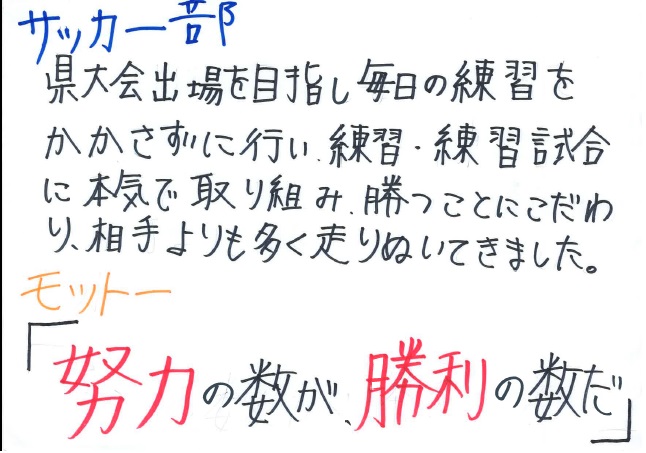 サッカー部
県大会出場を目指し毎日の練習を
かかさずに行い、練習・練習試合
に本気で取り組み、勝つことにこだわ
り、相手よりも多く走りぬいてきました。
モットー
「努力の数が、勝利の数だ」